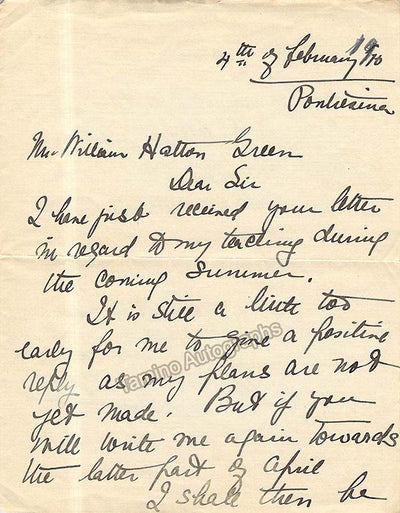 4th of February 1910
Pontresina
Mr. William Hatton Green
Dear Sir
I have just received your letter
in regard to my teaching during
the coming Summer.
It is still a little too
early for me to give a positive
reply as my plans are not
yet made. But if you
will write me again towards
the latter part of April
I shall then be
Tamino Autographs